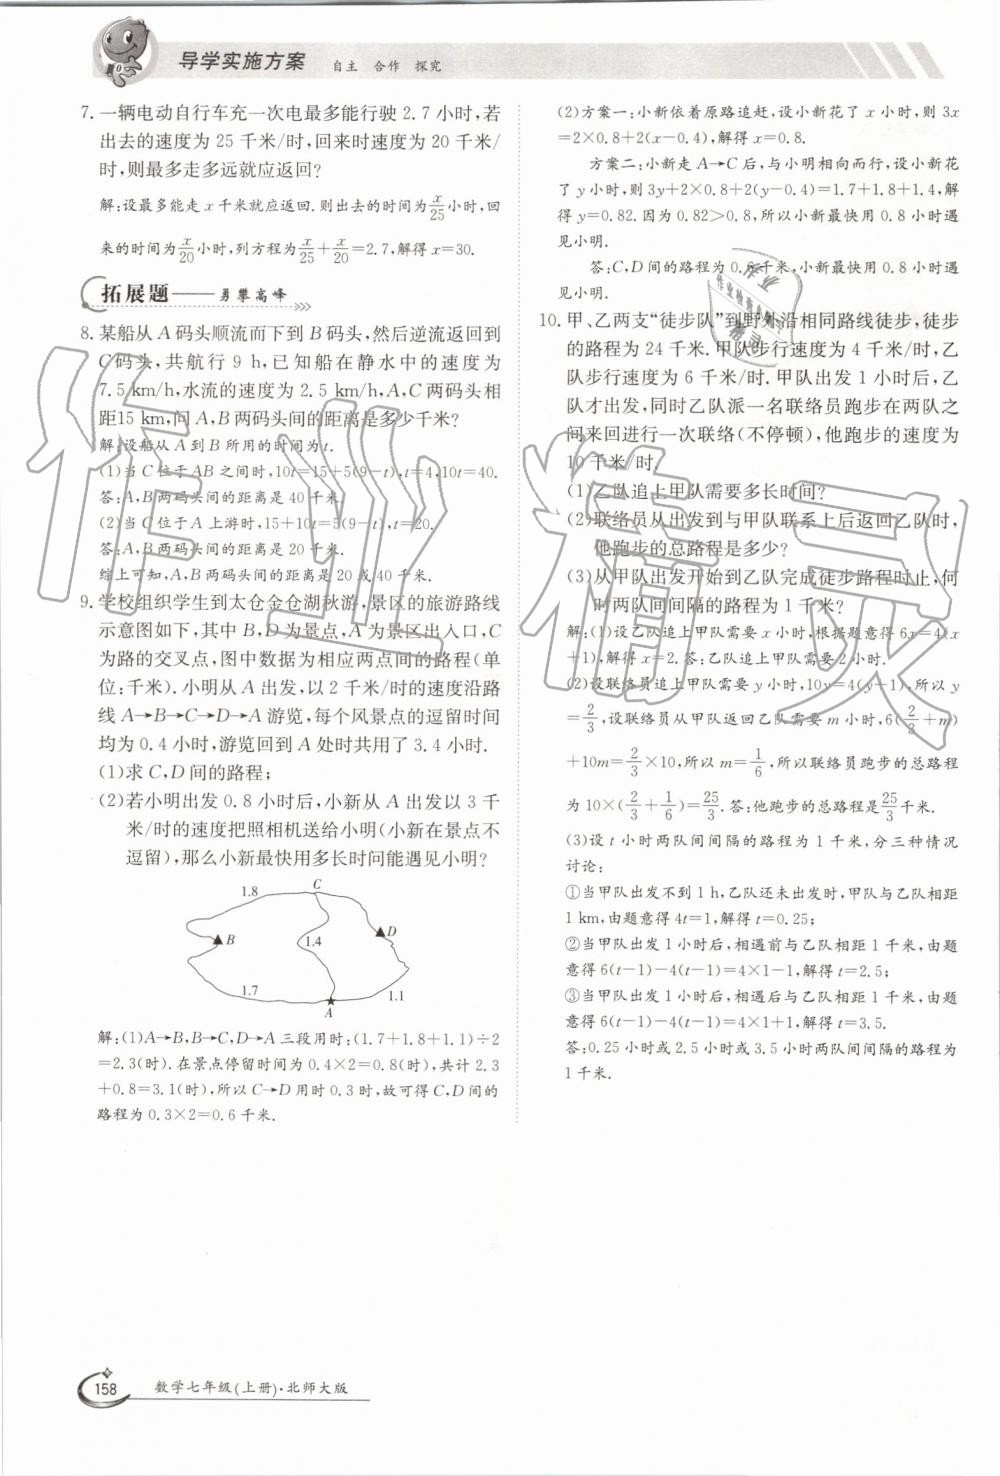 导学实施方案 自主 合作 探究
7. 一辆电动自行车充一次电最多能行驶 2.7 小时,若
出去的速度为 25 千米/时,回来时速度为 20 千米/
时,则最多走多远就应返回?
解:设最多能走 x 千米就应返回.则出去的时间为x/25小时,回
来的时间为x/20小时,列方程为x/25+x/20=2.7,解得 x=30.
拓展题——勇攀高峰
8. 某船从 A 码头顺流而下到 B 码头,然后逆流返回到
C码头,共航行 9 h,已知船在静水中的速度为
7.5 km/h,水流的速度为 2.5 km/h,A,C 两码头相
距15 km,问 A,B 两码头间的距离是多少千米?
解:设船从 A 到 B 所用的时间为 t.
(1)当 C 位于 AB 之间时,10t=15+5(9-t),t=4,10t=40.
答:A,B 两码头间的距离是 40 千米.
(2)当 C 位于 A 上游时,15+10t=5(9-t),t=20.
答:A,B 两码头间的距离是 20 千米.
综上可知,A,B 两码头间的距离是 20或40 千米.
9. 学校组织学生到太仓金仓湖秋游,景区的旅游路线
示意图如下,其中 B,D 为景点,A 为景区出入口,C
为路的交叉点,图中数据为相应两点间的路程(单
位:千米).小明从 A 出发,以 2 千米/时的速度沿路
线 A→B→C→D→A 游览,每个风景点的逗留时间
均为 0.4 小时,游览回到 A 处时共用了 3.4 小时.
(1)求 C,D 间的路程;
(2)若小明出发 0.8 小时后,小新从 A 出发以 3 千
米/时的速度把照相机送给小明(小新在景点不
逗留),那么小新最快用多长时间能遇见小明?
1.8 C
B 1.4 D
1.7 1.1
A
解:(1)A→B,B→C,D→A 三段用时:(1.7+1.8+1.1)÷2
=2.3(时).在景点停留时间为 0.4×2=0.8(时),共计 2.3
+0.8=3.1(时),所以 C→D 用时 0.3 时,故可得 C,D 间的
路程为 0.3×2=0.6 千米.
(2)方案一:小新依着原路追赶,设小新花了 x 小时,则 3x
=2×0.8+2(x-0.4),解得 x=0.8.
方案二:小新走 A→C 后,与小明相向而行,设小新花
了 y 小时,则 3y+2×0.8+2(y-0.4)=1.7+1.8+1.4,解
得 y=0.82.因为 0.82>0.8,所以小新最快用 0.8 小时遇
见小明.
答:C,D 间的路程为 0.6 千米,小新最快用 0.8 小时遇
见小明.
10. 甲、乙两支“徒步队”到野外沿相同路线徒步,徒步
的路程为 24 千米.甲队步行速度为 4 千米/时,乙
队步行速度为 6 千米/时.甲队出发 1 小时后,乙
队才出发,同时乙队派一名联络员跑步在两队之
间来回进行一次联络(不停顿),他跑步的速度为
10 千米/时.
(1)乙队追上甲队需要多长时间?
(2)联络员从出发到与甲队联系上后返回乙队时,
他跑步的总路程是多少?
(3)从甲队出发开始到乙队完成徒步路程时止,何
时两队间间隔的路程为 1 千米?
解:(1)设乙队追上甲队需要 x 小时,根据题意得 6x=4(x
+1),解得 x=2.答:乙队追上甲队需要 2 小时.
(2)设联络员追上甲队需要 y 小时,10y=4(y-1),所以 y
=2/3,设联络员从甲队返回乙队需要 m 小时,6(2/3+m)
+10m=2/3×10,所以 m=1/6,所以联络员跑步的总路程
为 10×(2/3+1/6)=25/3.答:他跑步的总路程是25/3千米.
(3)设 t 小时两队间间隔的路程为 1 千米,分三种情况
讨论:
①当甲队出发不到 1 h,乙队还未出发时,甲队与乙队相距
1 km,由题意得 4t=1,解得 t=0.25;
②当甲队出发 1 小时后,相遇前与乙队相距 1 千米,由题
意得 6(t-1)-4(t-1)=4×1-1,解得 t=2.5;
③当甲队出发 1 小时后,相遇后与乙队相距 1 千米,由题
意得 6(t-1)-4(t-1)=4×1+1,解得 t=3.5.
答:0.25 小时或 2.5 小时或 3.5 小时两队间间隔的路程为
1 千米.
作业精灵
158 数学七年级(上册)·北师大版